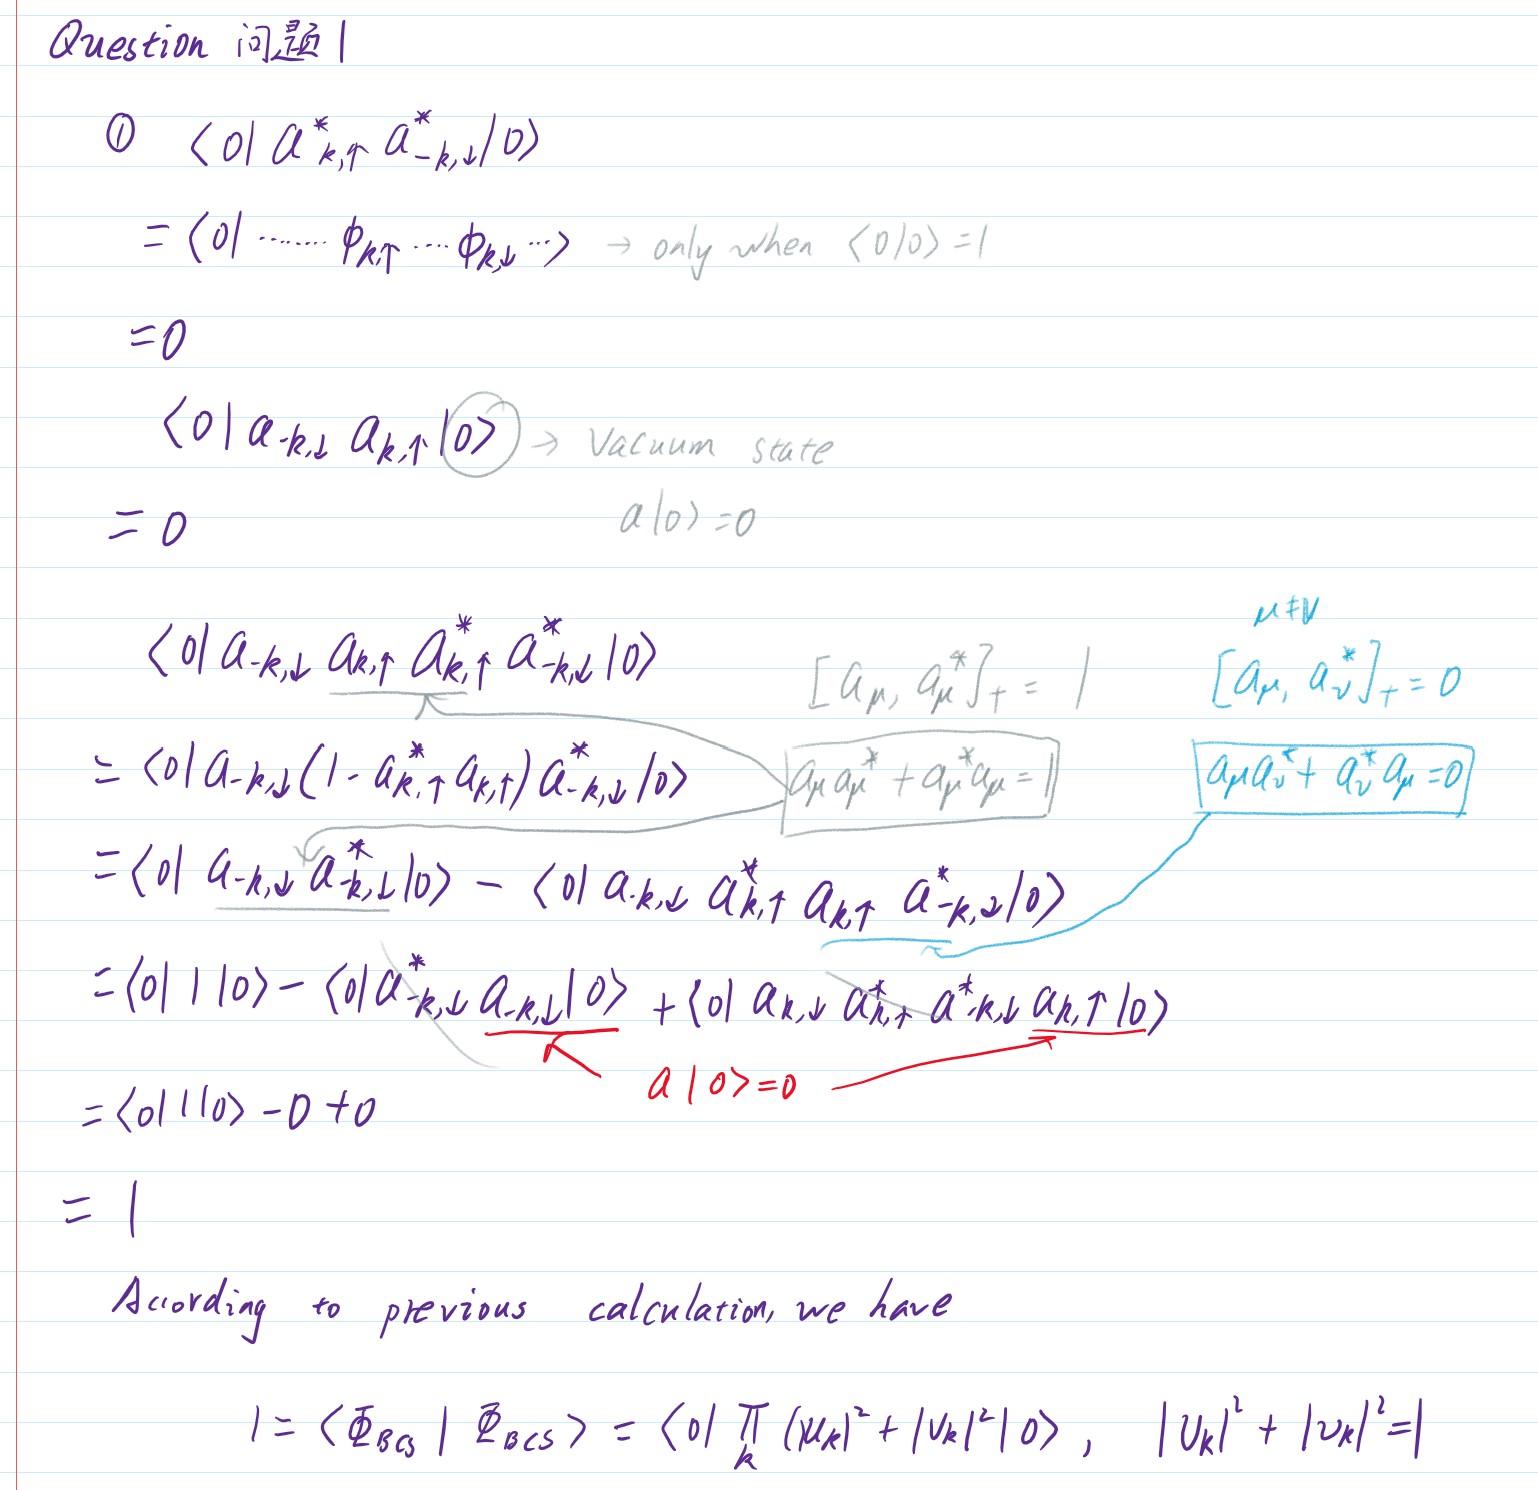 Question 问题1
① ⟨0| a*_{k,↑} a*_{-k,↓} |0⟩
= ⟨0| ........ ϕ_{k,↑} .... ϕ_{k,↓} ...⟩ → only when ⟨0|0⟩ = 1
= 0
⟨0| a_{-k,↓} a_{k,↑} |0⟩ → Vacuum state
= 0 a|0⟩ = 0
μ≠ν
⟨0| a_{-k,↓} a_{k,↑} a*_{k,↑} a*_{-k,↓} |0⟩ [a_μ, a*_μ]_+ = 1 [a_μ, a*_ν]_+ = 0
= ⟨0| a_{-k,↓} (1 - a*_{k,↑} a_{k,↑}) a*_{-k,↓} |0⟩ a_μ a_μ* + a_μ* a_μ = 1 a_μ a_ν* + a_ν* a_μ = 0
= ⟨0| a_{-k,↓} a*_{-k,↓} |0⟩ - ⟨0| a_{-k,↓} a*_{k,↑} a_{k,↑} a*_{-k,↓} |0⟩
= ⟨0| 1 |0⟩ - ⟨0| a*_{-k,↓} a_{-k,↓} |0⟩ + ⟨0| a_{k,↓} a*_{k,↑} a*_{-k,↓} a_{k,↑} |0⟩
a|0⟩ = 0
= ⟨0| 1 |0⟩ - 0 + 0
= 1
According to previous calculation, we have
1 = ⟨Φ_{BCS} | Φ_{BCS}⟩ = ⟨0| ∏_k (|u_k|² + |v_k|² |0⟩, |u_k|² + |v_k|² = 1